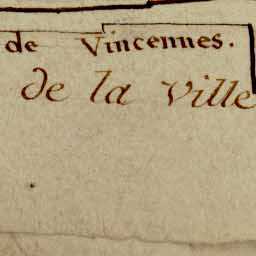 de Vincennes.
de la Ville